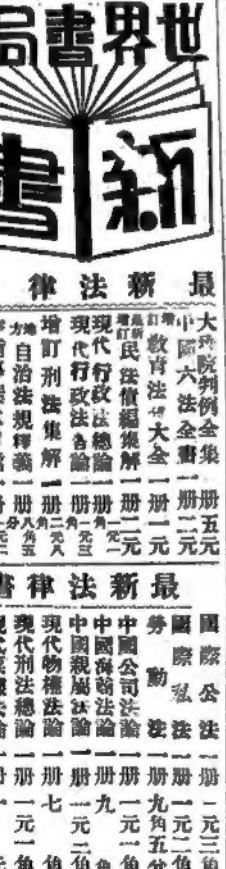 世界書局
新書
最新法律
大理院判例全集 一册 五元
增訂中國六法全書 一册 二元
增訂教育法令大全 一册 一元
最新增訂民法債編集解 一册 二元
現代行政法總論 一册
現代行政法各論 一册
增訂刑法集解 一册
地方自治法規釋義 一册
最新法律書
國際公法 一册 二元三角
國際私法 一册 一元二角
勞動法 一册 九角五分
中國公司法論 一册 一元一角
中國海商法論 一册 九角
中國親屬法論 一册 一元二角
現代物權法論 一册 七角
現代刑法總論 一册 一元一角